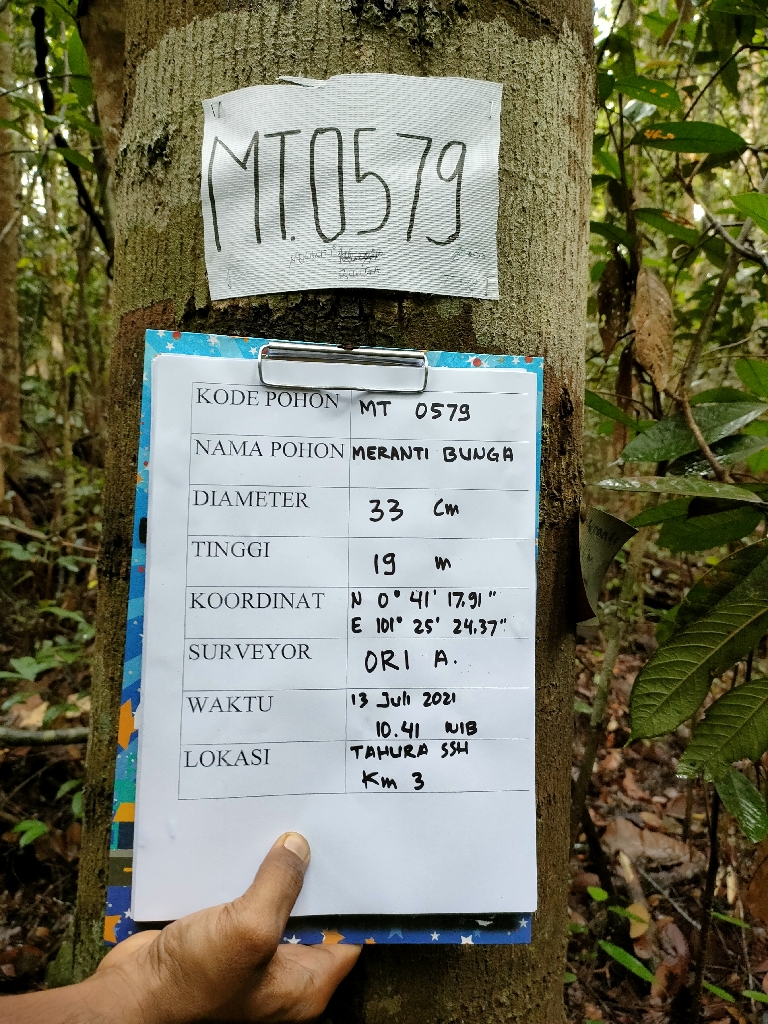 MT.0579
KODE POHON MT 0579
NAMA POHON MERANTI BUNGA
DIAMETER 33 Cm
TINGGI 19 m
KOORDINAT N 0° 41' 17.91"
E 101° 25' 24.37"
SURVEYOR ORI A.
WAKTU 13 Juli 2021
10.41 WIB
LOKASI TAHURA SSH
Km 3